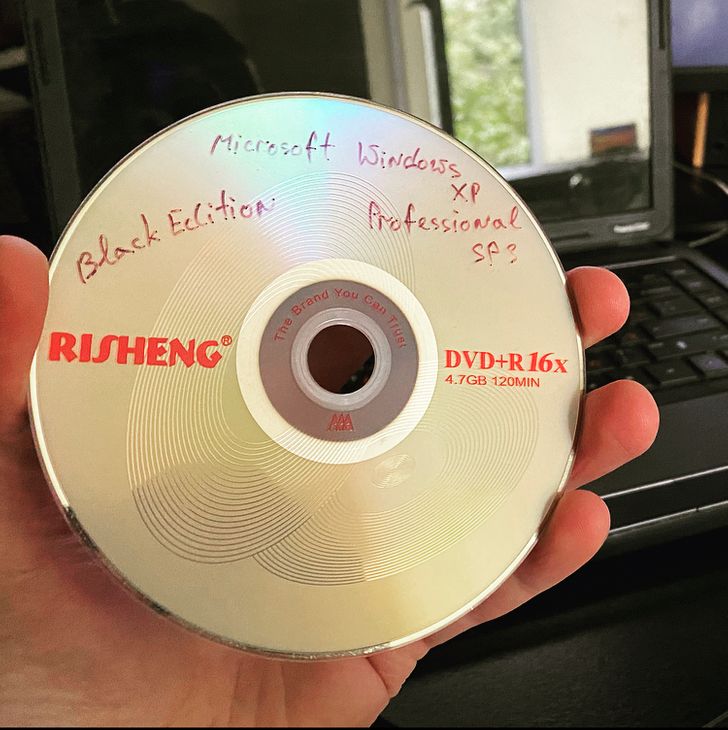 Microsoft Windows
XP
Black Edition
Professional
SP3
RISHENG®
The Brand You Can Trust
DVD+R 16x
4.7GB 120MIN